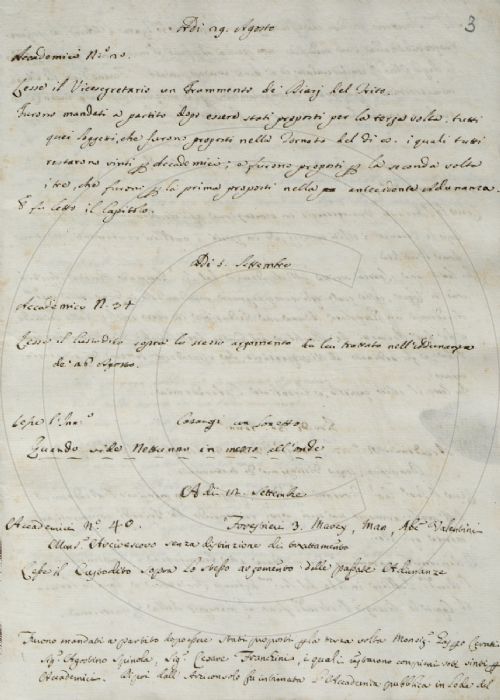 3
Adi 29. Agosto
Accademici N.º 20.
Lesse il Vicesegretario un Frammento de' Diarj del
Furono mandati a partito dopo essere stati proposti per la terza volta tutti
quei soggetti, che furono proposti nella Tornata del dì i quali tutti
restarono vinti p Accademici; e furono proposti p la seconda volta
i tre, che furono p la prima proposti nella antecedente Adunanza.
fu letto il Capitolo.
Adi 5. Settembre
Accademici N. 34
Lesse il Custodito sopra lo stesso argomento da lui trattato nell'Adunanza
de' Agosto.
Lesse un Sonetto
Quando vide Nettunno in mezzo all'onde
Adi 12. Settembre
Accademici N.º 40. Forestieri 3. Abe Valentini
Arcivescovo senza distinzione di trattamento
Lesse il Custodito sopra lo stesso argomento delle passate Adunanze
Furono mandati a partito dopo essere stati proposti già terza volta Monsig.
Sig. Agostino Spinola, Sig. Cesare Franchini, i quali restarono vinti p
Accademici. fu intimata l'Accademia pubblica in lode del